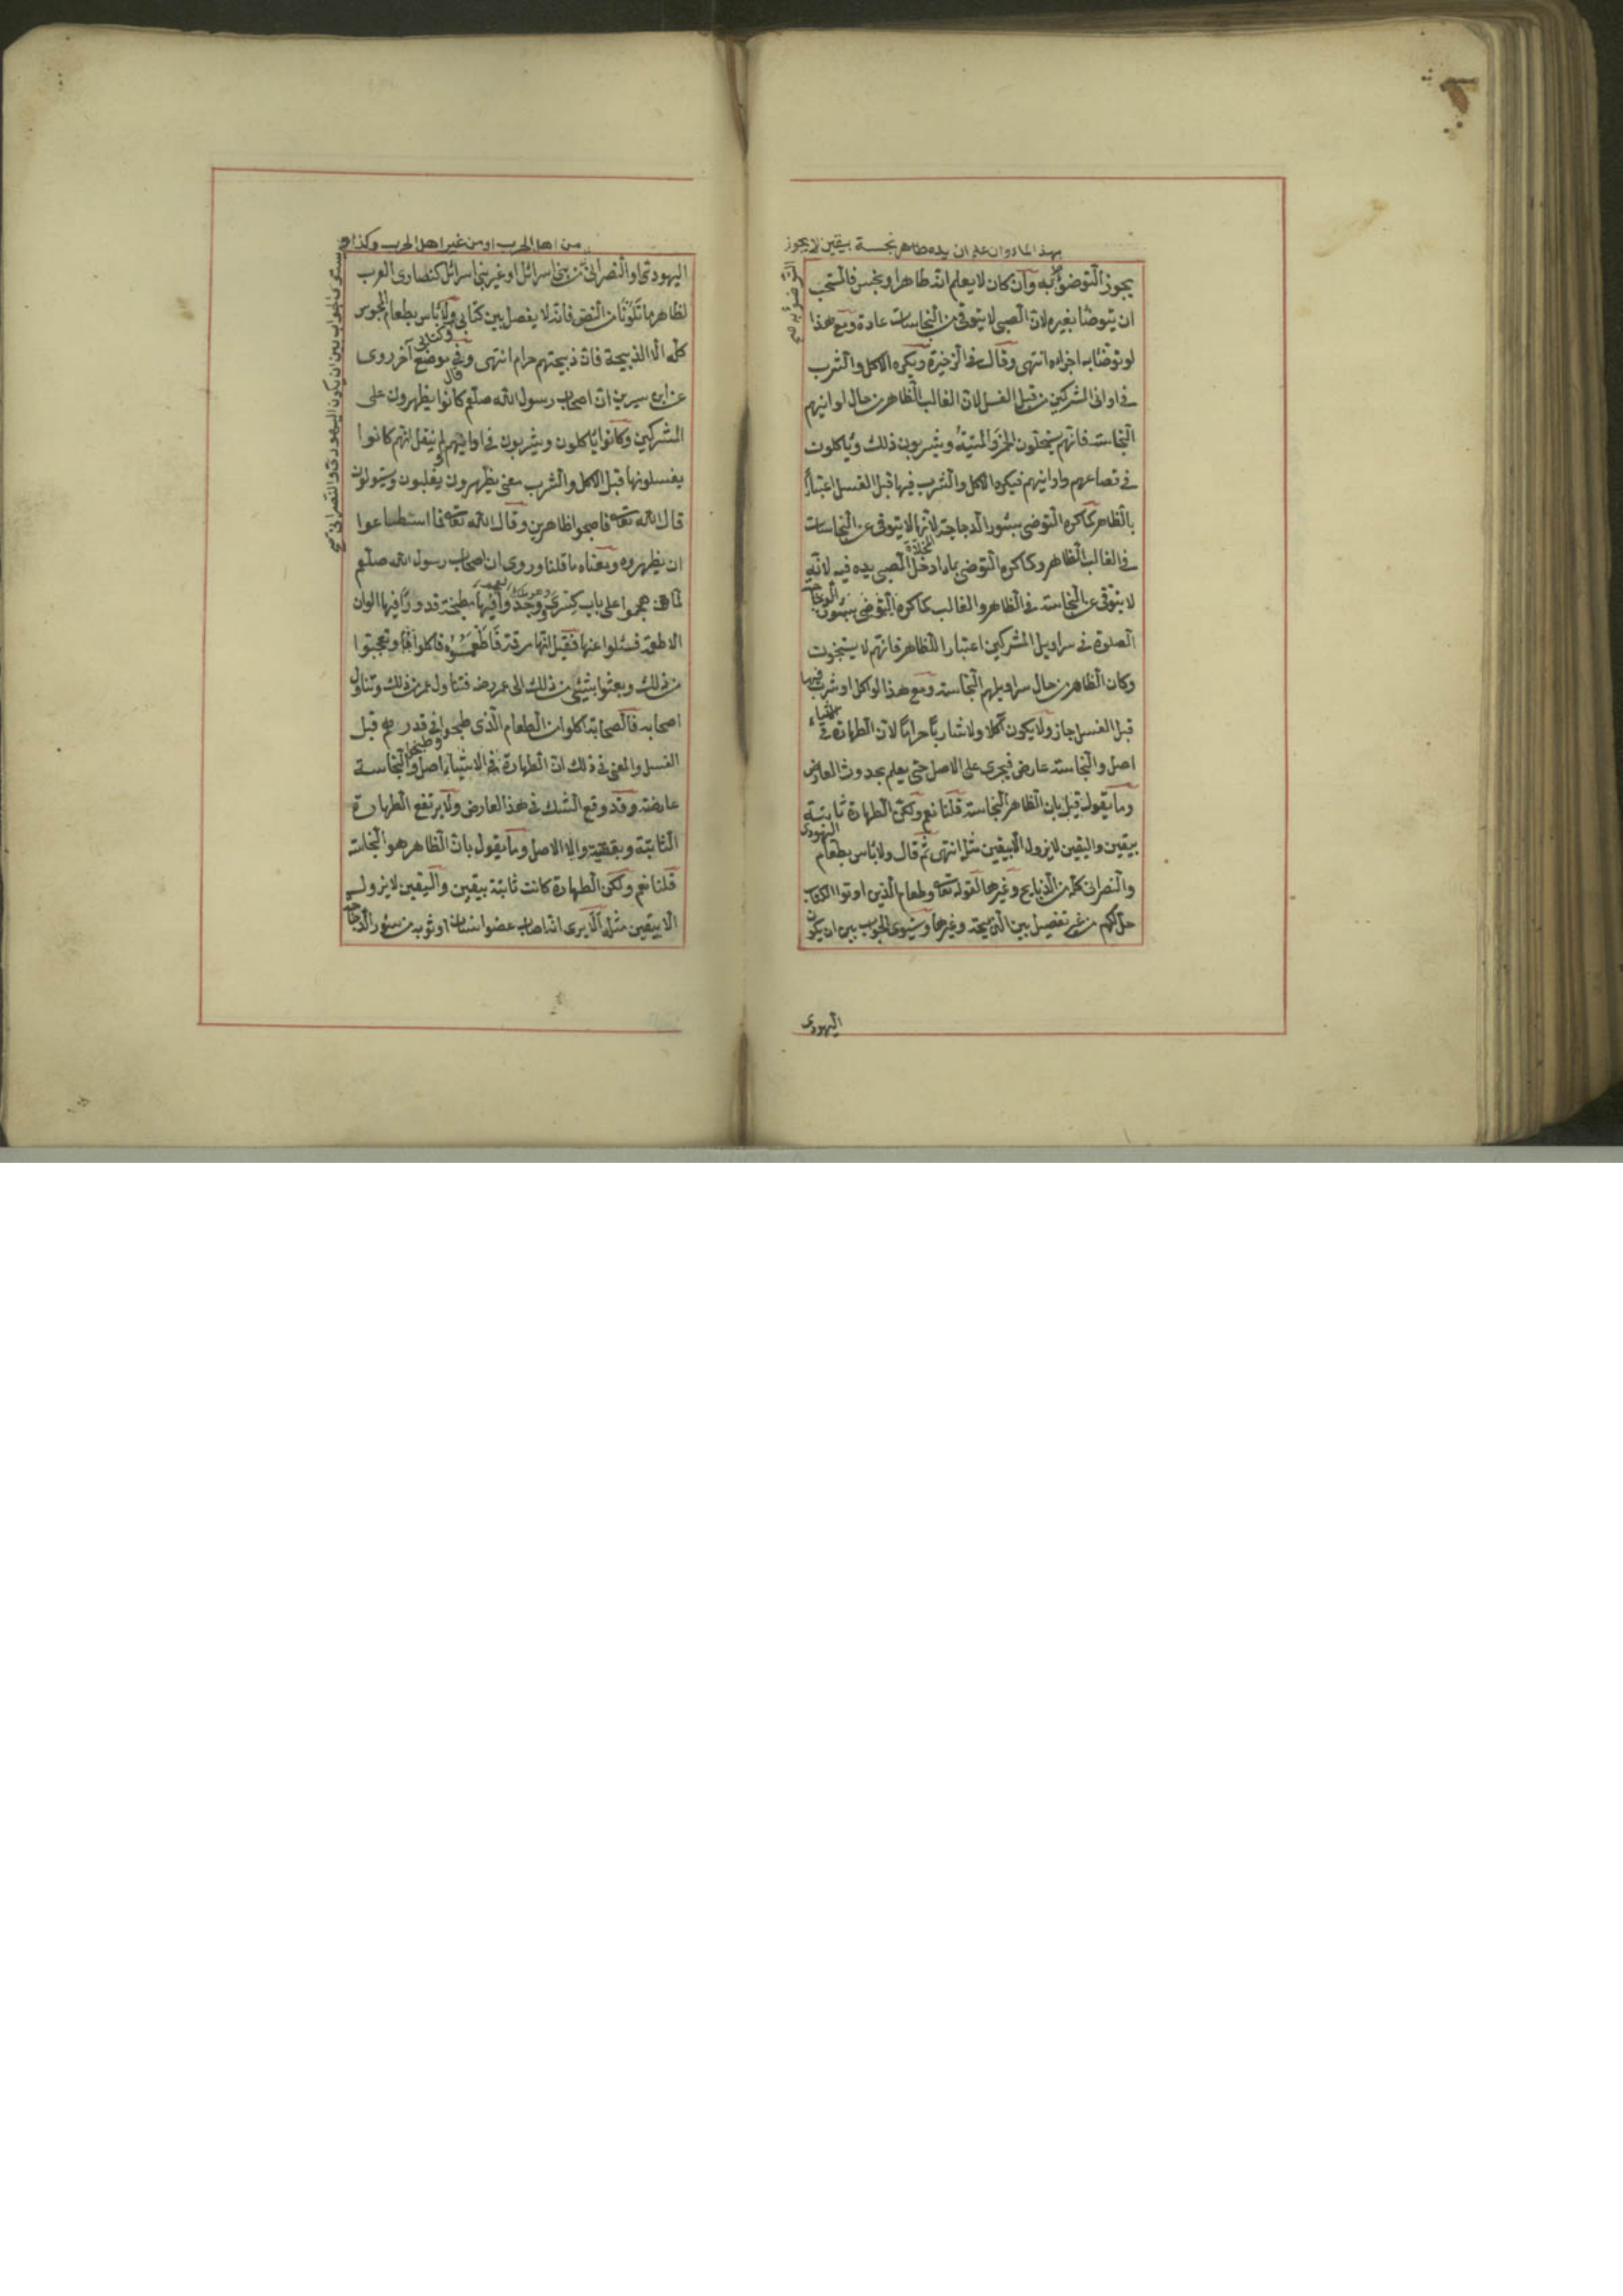 بهذا الماء وان علم ان يده طاهر نجسة بيقين لا يجوز
التوضؤ به صح
يجوز التوضؤ به وان كان لا يعلم انه طاهر او نجس فالمستحب
ان يتوضأ بغيره لان الصبي لا يتوقى من النجاسات عادة ومع هذا
لو توضأ به اجزاه انتهى وقال في الذخيرة ويكره الاكل والشرب
في اواني المشركين من قبل الغسل لان الغالب الظاهر من حال اوانيهم
النجاسة فانهم يستحلون الخمر والميتة ويشربون ذلك ويأكلون
في قصاعهم واوانيهم فيكره الاكل والشرب فيها قبل الغسل اعتبارا
بالظاهر كما كره التوضئ بسؤر الدجاجة لانها لا يتوقى عن النجاسات
المخلاة
في الغالب الظاهر وكما كره التوضئ بماء ادخل الصبي يده فيه لانه
لا يتوقى عن النجاسة في الظاهر والغالب كما كره التوضئ
الصلوة في سراويل المشركين اعتبارا للظاهر فانهم لا يستنجون
وكان الظاهر من حال سراويلهم النجاسة ومع هذا لو اكل او شرب فيها
قبل الغسل جاز ولا يكون آكلا ولا شاربا حراما لان الطهارة في الاشياء
اصل والنجاسة عارض فيجري على الاصل حتى يعلم بحدوث العارض
وما يقول قيل بان الظاهر النجاسة قلنا نعم ولكن الطهارة ثابتة
بيقين واليقين لا يزول الا بيقين مثله انتهى ثم قال ولا بأس بطعام اليهودي
والنصراني كله من الذبايح وغيرها لقوله تعالى وطعام الذين اوتوا الكتاب
حل لكم من غير تفصيل بين الذبيحة وغيرها ويستوي الجواب بين ان يكون
اليهودي
من اهل الحرب او من غير اهل الحرب وكذا
يستوي الجواب بين ان يكون اليهودي والنصراني صح
اليهودي او النصراني من بني اسرائل او غير بني اسرائل كنصارى العرب
لظاهر ما تلونا من النص فانه لا يفصل بين كتابي وكتابي ولا بأس بطعام المجوس
كله الا الذبيحة فان ذبيحتهم حرام انتهى وفي موضع آخر روى
عن ابن سيرين قال ان اصحاب رسول الله صلعم كانوا يظهرون على
المشركين وكانوا يأكلون ويشربون في اوانيهم ولم ينقل انهم كانوا
يغسلونها قبل الاكل والشرب معنى يظهرون يغلبون ويستولون
قال الله تعالى فاصبحوا ظاهرين وقال الله تعالى فما استطاعوا
ان يظهروه ومعناه ما قلنا وروى ان اصحاب رسول الله صلعم
لما هجموا على باب كسرى وجدوا فيها مطبخة قدورا فيها الوان
الاطعمة فسئلوا عنها فقيل انها مرقة فاكلوا وتعجبوا
من ذلك وبعثوا بشيئ من ذلك الى عمر رض فتناول عمر من ذلك وتناول
اصحابه فالصحابة اكلوا من الطعام الذي طبخوا في قدورهم قبل
الغسل والمعنى في ذلك ان الطهارة في الاشياء اصل والنجاسة
عارضة وقد وقع الشك في هذا العارض ولا يرتفع الطهارة
الثابتة الاصل وما يقول بان الظاهر هو النجاسة
قلنا نعم ولكن الطهارة كانت ثابتة بيقين واليقين لا يزول
الا بيقين مثله الا يرى انه اصاب عضو انسان او ثوبه من سؤر الدجاجة